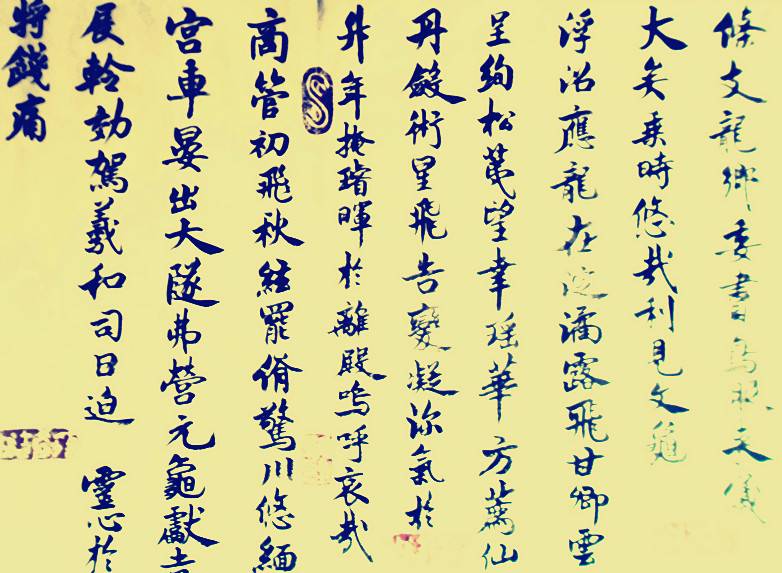 條支龍鄉委書烏天儀
大矣乘時悠哉利見文龜
浮沼應龍在淀潏露飛甘卿雲
呈絢松茂望幸瑤華方薦仙
丹術星飛告變凝沴氣於
升年掩暉於離殿嗚呼哀哉
高管初飛秋絃罷脩驚川悠緬
宮車晏出大隧弗營元龜獻吉
展軨効駕羲和司日迫靈心於
將餞痛